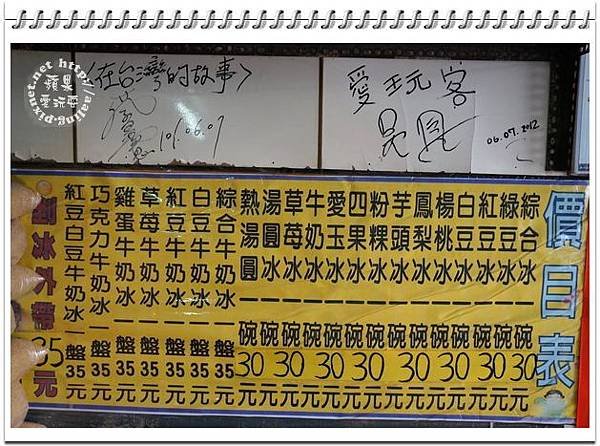 蘋果
愛玩亞
aajing.pixnet.net
〈在台灣的故事〉
101.06.07
愛玩客
06.07.2012
價目表
綜合冰一碗30元
綠豆冰一碗30元
紅豆冰一碗30元
白豆冰一碗30元
楊桃冰一碗30元
鳳梨冰一碗30元
芋頭冰一碗30元
粉粿冰一碗30元
四果冰一碗30元
愛玉冰一碗30元
牛奶冰一碗30元
草莓冰一碗30元
湯圓冰一碗30元
熱湯圓一碗30元
綜合牛奶冰一盤35元
白豆牛奶冰一盤35元
紅豆牛奶冰一盤35元
草莓牛奶冰一盤35元
雞蛋牛奶冰一盤35元
巧克力牛奶冰一盤35元
紅豆白豆牛奶冰一盤35元
冰外帶35元